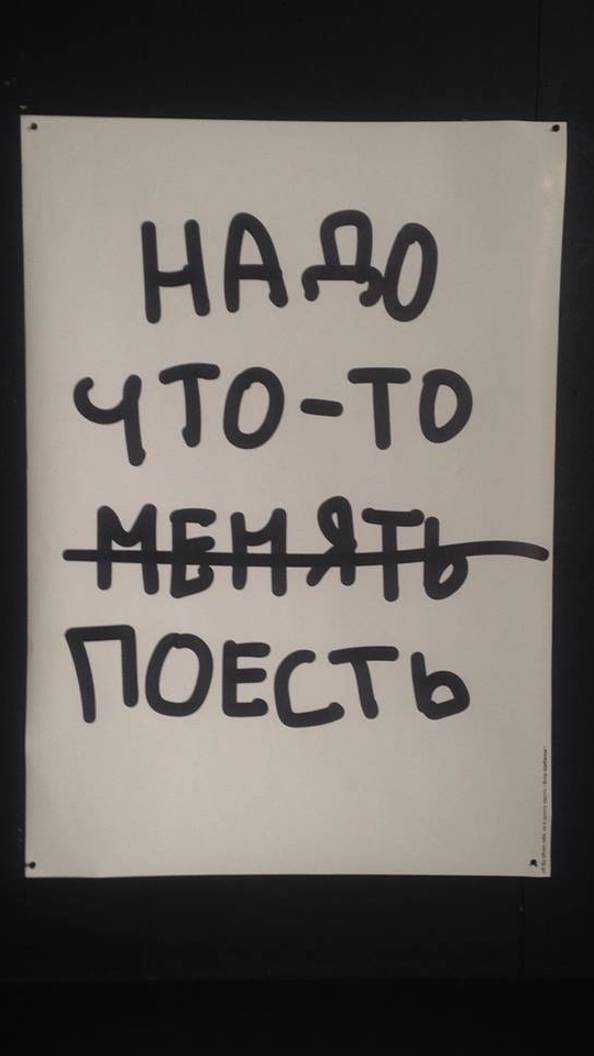 НАДО
ЧТО-ТО
МЕНЯТЬ
ПОЕСТЬ